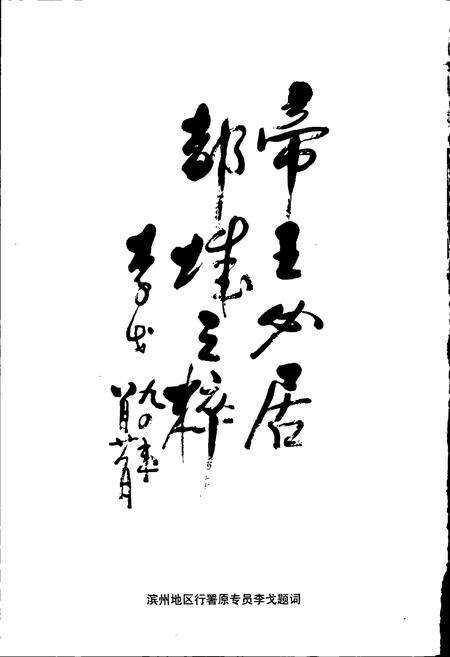 帝王必居
都城之粹
李戈
九〇年
八月廿八月
滨州地区行署原专员李戈题词